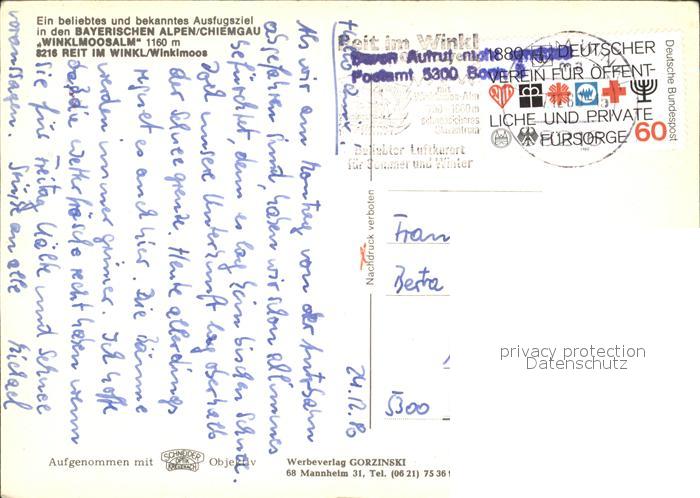 Ein beliebtes und bekanntes Ausfugsziel
in den BAYERISCHEN ALPEN/CHIEMGAU
„WINKLMOOSALM" 1160 m
8216 REIT IM WINKL/Winklmoos
24.12.80
Als wir am Montag von der Autobahn
abgefahren sind, haben wir schon schlimmes
befürchtet, denn es lag kein bischen Schnee.
Doch unsere Unterkunft lag oberhalb
der Schneegrenze. Heute allerdings
regnet es auch hier. Die Bäume
werden immer grüner. Ich hoffe
daß die Wetterfrösche recht haben wenn
sie für Freitag Kälte und Schnee
voraussagen. Grüße an alle Michael
Reit im Winkl
Postamt 5300
Beliebter Luftkurort
für Sommer und Winter
1880 DEUTSCHER
VEREIN FÜR ÖFFENT-
LICHE UND PRIVATE
FÜRSORGE 60
Deutsche Bundespost
Nachdruck verboten
Fran
Berta
5300
privacy protection
Datenschutz
Aufgenommen mit SCHNEIDER OPTIK KREUZNACH Objektiv
Werbeverlag GORZINSKI
68 Mannheim 31, Tel. (06 21) 75 36